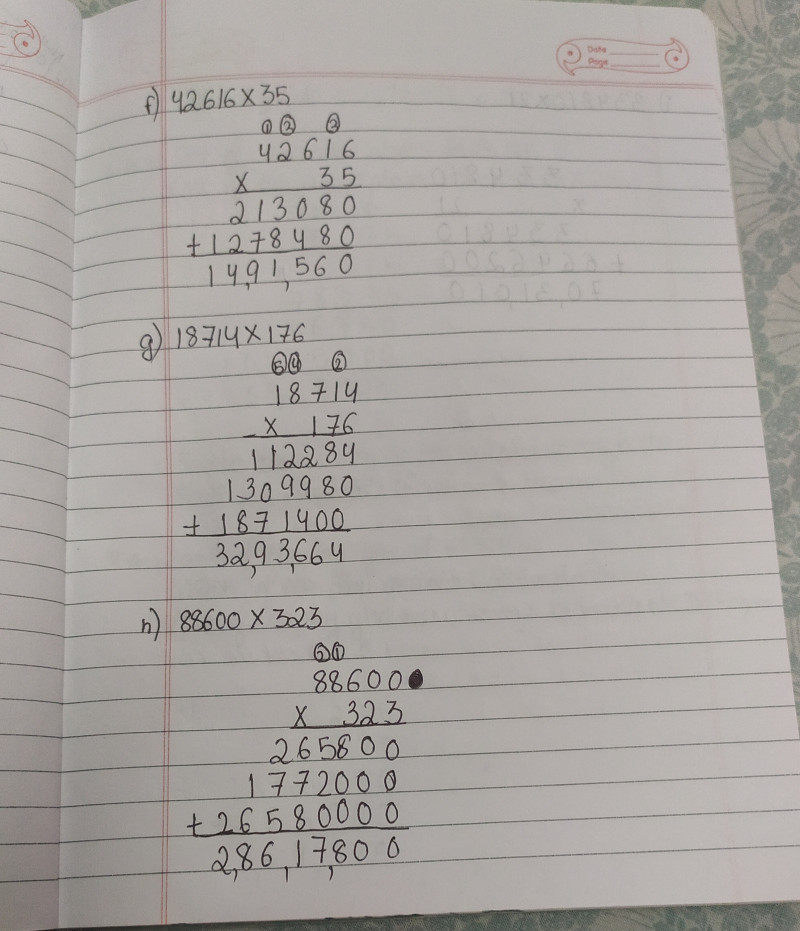 Date
Page
f) 42616 X 35
① ② ③
42616
X 35
213080
+ 1278480
14,91,560
g) 18714 X 176
⑤ ④ ②
18714
X 176
112284
1309980
+ 1871400
32,93,664
h) 88600 X 323
88600
X 323
265800
1772000
+ 26580000
2,86,17,800